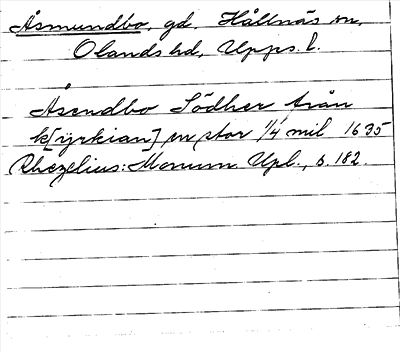 Åsmundbo, gd, Hållnäs sn,
Olands hd, Upps. l.
Åsendbo Södher från
k[yrkian] en stor 1/4 mil 1635
Rhezelius: Monum Upl., s. 182.